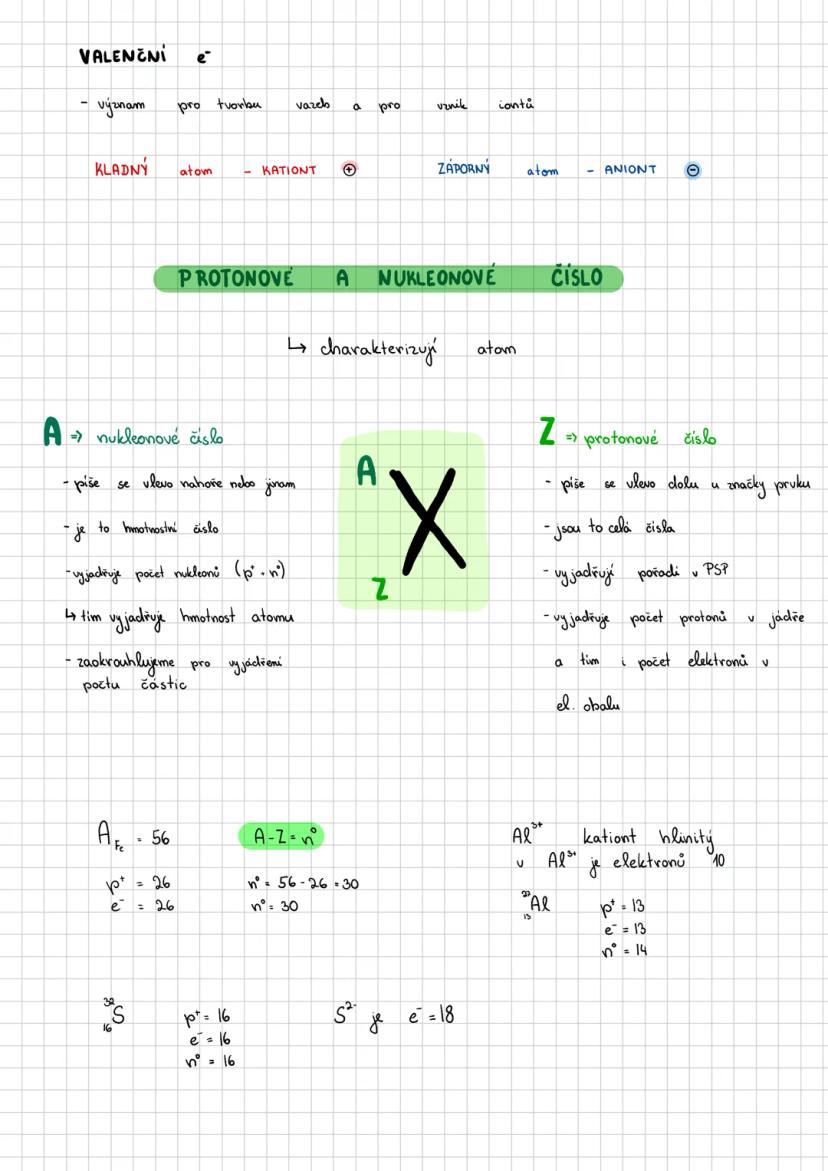 VALENČNÍ e⁻
- význam pro tvorbu vazeb a pro vznik iontů
KLADNÝ atom - KATIONT ⊕
ZÁPORNÝ atom - ANIONT ⊖
PROTONOVÉ A NUKLEONOVÉ ČÍSLO
↳ charakterizují atom
A => nukleonové číslo
- píše se vlevo nahoře nebo jinam
- je to hmotnostní číslo
- vyjadřuje počet nukleonů (p⁺ + n⁰)
↳ tím vyjadřuje hmotnost atomu
- zaokrouhlujeme pro vyjádření
počtu částic
A
X
Z
Z => protonové číslo
- píše se vlevo dolu u značky prvku
- jsou to celá čísla
- vyjadřují pořadí v PSP
- vyjadřuje počet protonů v jádře
a tím i počet elektronů v
el. obalu
A Fe = 56
p⁺ = 26
e⁻ = 26
A-Z = n⁰
n⁰ = 56 - 26 = 30
n⁰ = 30
Al³⁺ kationt hlinitý
v Al³⁺ je elektronů 10
²⁷₁₃Al
p⁺ = 13
e⁻ = 13
n⁰ = 14
³²₁₆S
p⁺ = 16
e⁻ = 16
n⁰ = 16
S²⁻ je e⁻ = 18